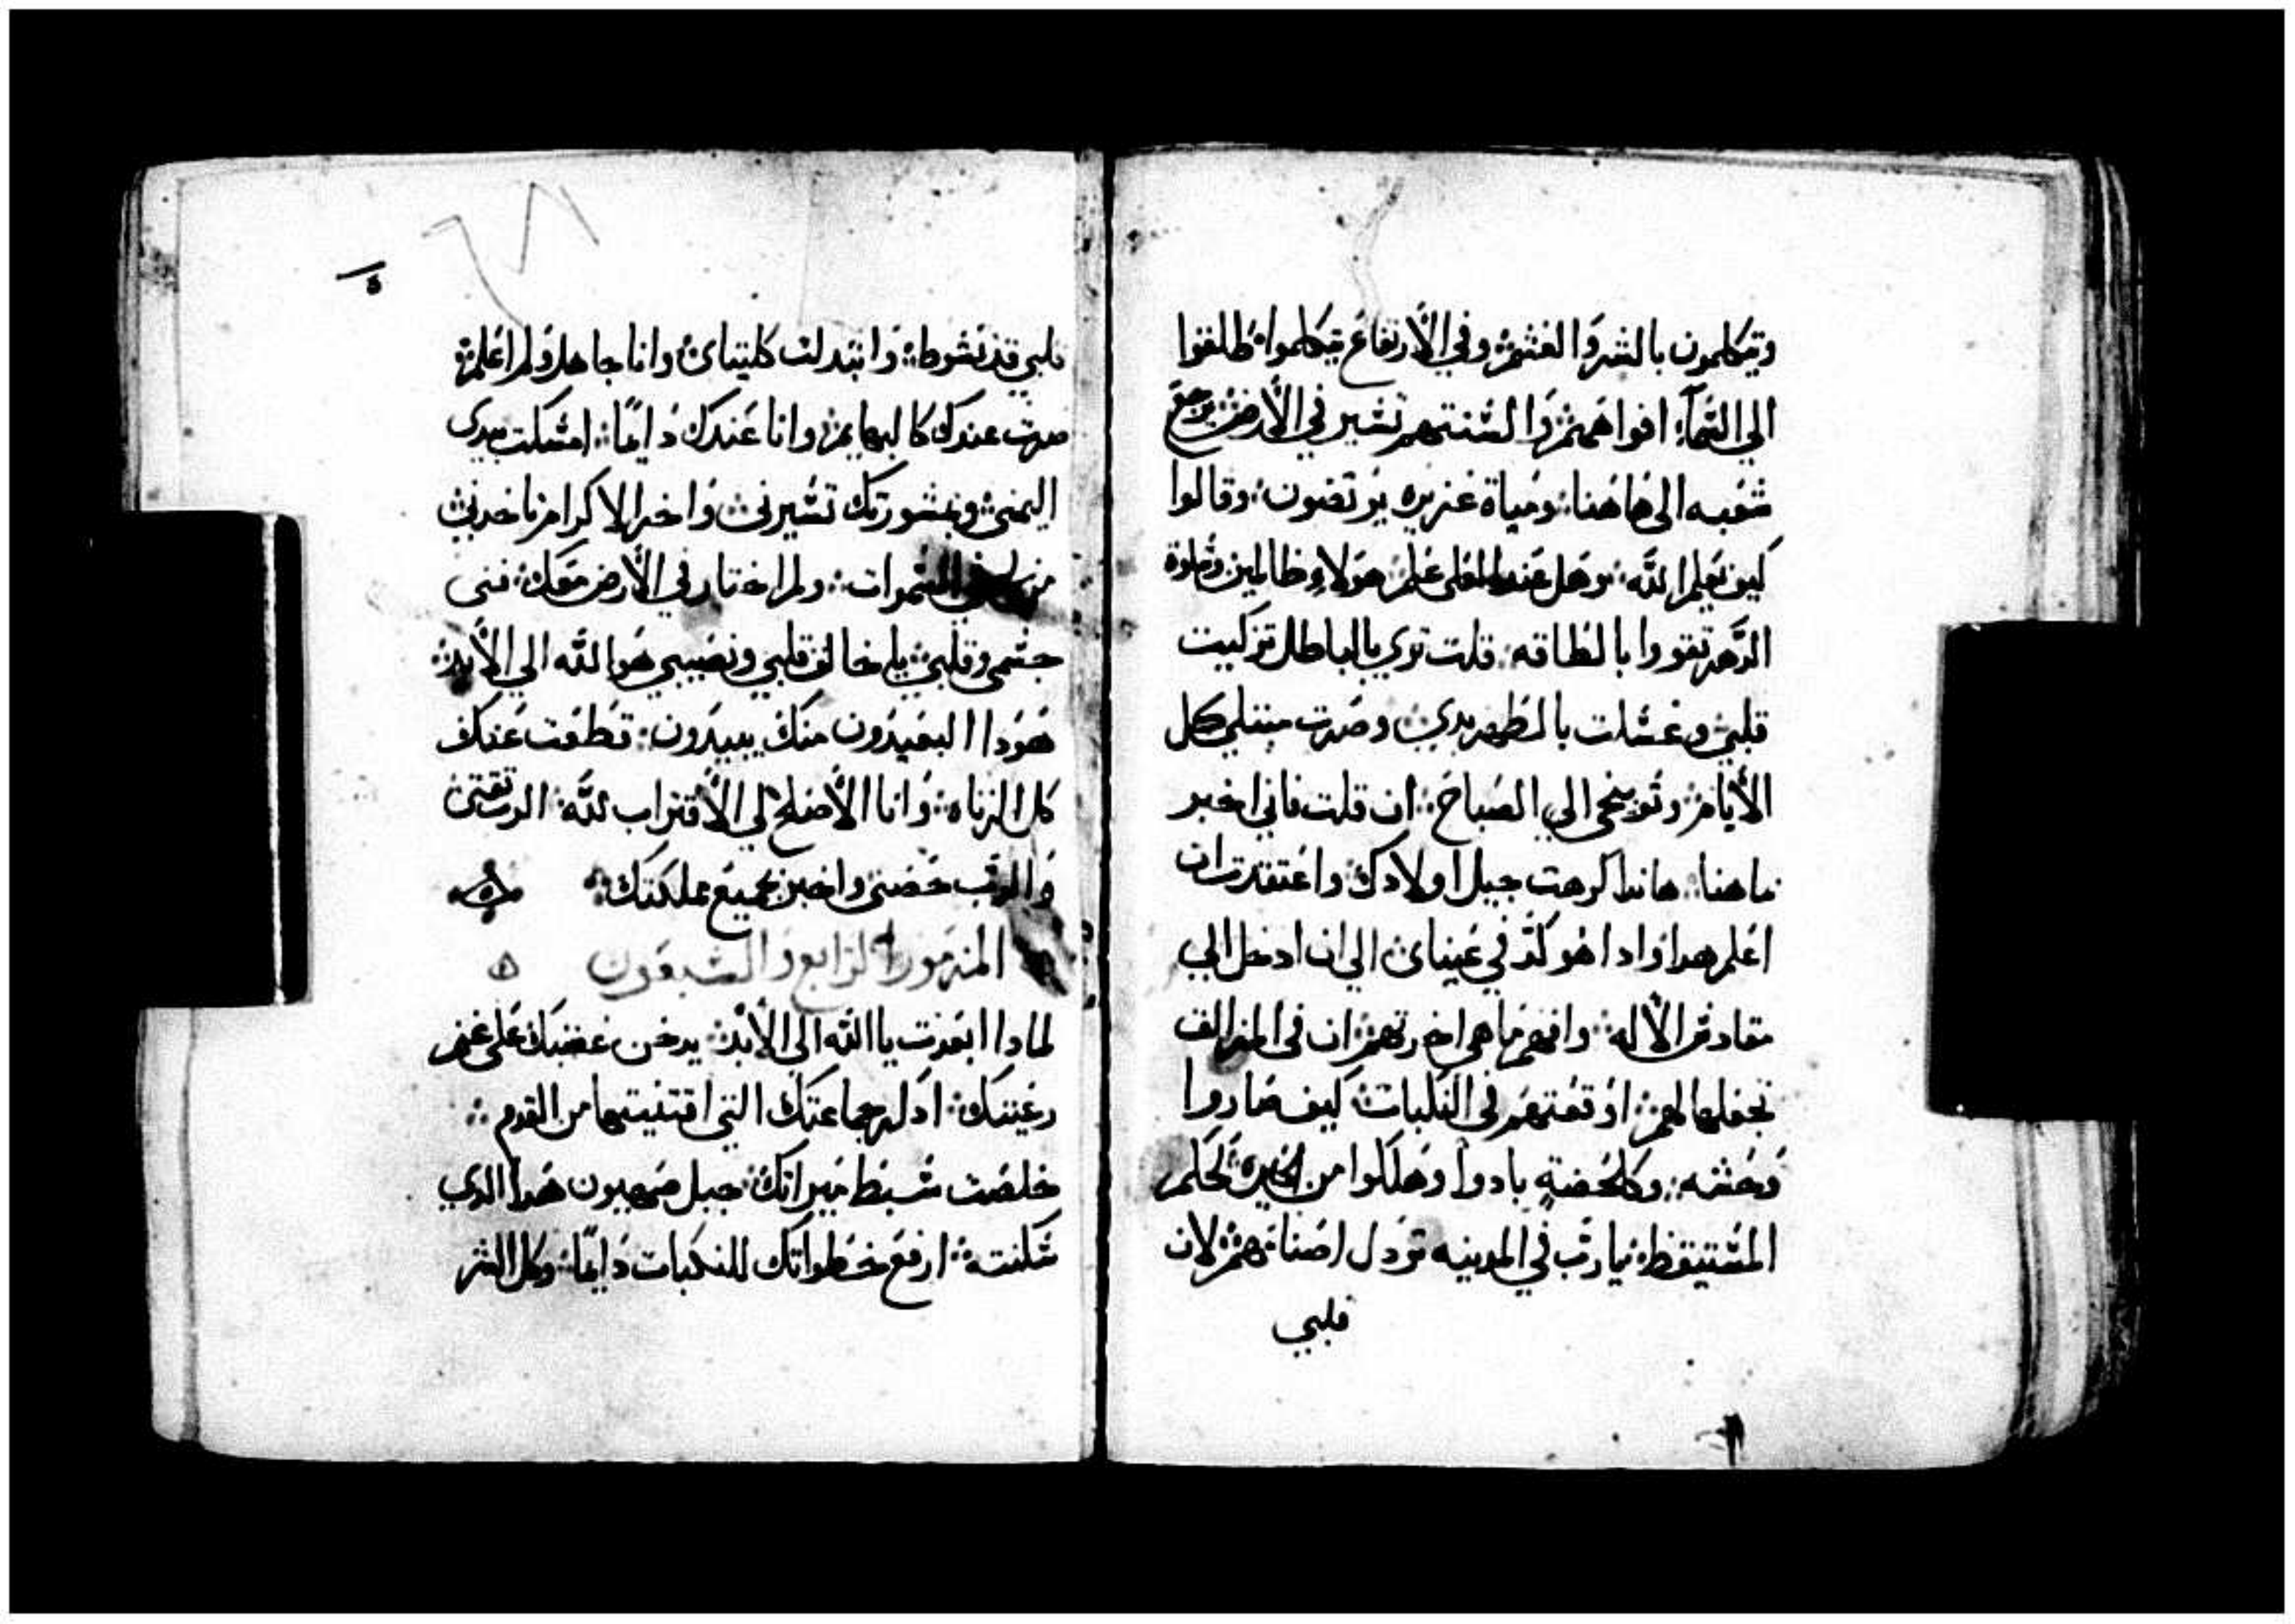 ويتكلمون بالشر والغشم وفي الأرتفاع يتكلموا اطلقوا
الي السمآء افواههم والسنتهم تسير في الأرض يرجع
شعبه الى هاهنا ومياة غزيره يوتضون وقالوا
كيف يعلم الله وهل عند العلى علم هولاء ظالمين
الدهر تقووا بالطاقه قلت تري بالباطل تزكيت
قلبي وغسلت بالطهر يدي وصرت مبتلي كل
الأيام وتوبيخى الي الصباح ان قلت فاني اخبر
ماهنا هاندا كرهت جيل اولادك واعتقدت ان
اعلم هدا وادا هو كد في عيناى الي ان ادخل الي
مقادس الأله وافهم ما هي اخرتهم ان في المزالق
تجعلها لهم اوقعتهم في النكبات كيف صاروا
وحشه وكلحضةٍ بادوا وهلكوا من كحلم
المستيقظ يا رب في المدينه تودل اصنامهم لان
قلبي
ه
قلبي قد نشوط وانبدلت كليتاى وانا جاهل ولم اعلم
صرت عندك كالبهايم وانا عندك دايمًا امسكت بيدى
اليمنى وبمشورتك تسيرنى واخر الاكرام تاخدني
السموات ولم اختار في الأرض معك فنى
جسمى وقلبى يا خالق قلبي ونصيبي هو الله الي الأبد
هودا البعيدون منك يبيدون قطعت عنك
كل الزناه وانا الأصلح لي الأقتراب لله الرب ثقتى
والرب حضنى واخبر بجميع مملكتك
المزمور الرابع والسبعون
لمادا ابعدت يا الله الي الأبد يدخن غضبك على غنم
رعيتك ادكر جماعتك التي اقتنيتها من القدم
خلصت سبط ميراتك جبل صهيون هدا الدي
سكنته ارفع خطواتك للنكبات دايمًا وكل الشر